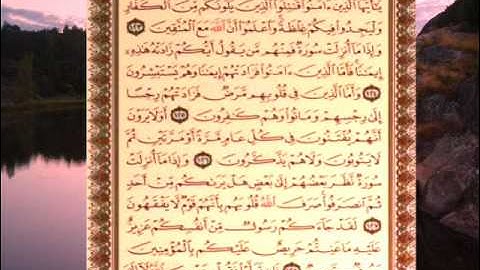 يَٰٓأَيُّهَا ٱلَّذِينَ ءَامَنُوا۟ قَٰتِلُوا۟ ٱلَّذِينَ يَلُونَكُم مِّنَ ٱلْكُفَّارِ
وَلْيَجِدُوا۟ فِيكُمْ غِلْظَةً ۚ وَٱعْلَمُوٓا۟ أَنَّ ٱللَّهَ مَعَ ٱلْمُتَّقِينَ ١٢٣
وَإِذَا مَآ أُنزِلَتْ سُورَةٌ فَمِنْهُم مَّن يَقُولُ أَيُّكُمْ زَادَتْهُ هَٰذِهِۦٓ
إِيمَٰنًا ۚ فَأَمَّا ٱلَّذِينَ ءَامَنُوا۟ فَزَادَتْهُمْ إِيمَٰنًا وَهُمْ يَسْتَبْشِرُونَ
١٢٤ وَأَمَّا ٱلَّذِينَ فِى قُلُوبِهِم مَّرَضٌ فَزَادَتْهُمْ رِجْسًا
إِلَىٰ رِجْسِهِمْ وَمَاتُوا۟ وَهُمْ كَٰفِرُونَ ١٢٥ أَوَلَا يَرَوْنَ
أَنَّهُمْ يُفْتَنُونَ فِى كُلِّ عَامٍ مَّرَّةً أَوْ مَرَّتَيْنِ ثُمَّ
لَا يَتُوبُونَ وَلَا هُمْ يَذَّكَّرُونَ ١٢٦ وَإِذَا مَآ أُنزِلَتْ
سُورَةٌ نَّظَرَ بَعْضُهُمْ إِلَىٰ بَعْضٍ هَلْ يَرَىٰكُم مِّنْ أَحَدٍ
ثُمَّ ٱنصَرَفُوا۟ ۚ صَرَفَ ٱللَّهُ قُلُوبَهُم بِأَنَّهُمْ قَوْمٌ لَّا يَفْقَهُونَ
١٢٧ لَقَدْ جَآءَكُمْ رَسُولٌ مِّنْ أَنفُسِكُمْ عَزِيزٌ
عَلَيْهِ مَا عَنِتُّمْ حَرِيصٌ عَلَيْكُم بِٱلْمُؤْمِنِينَ